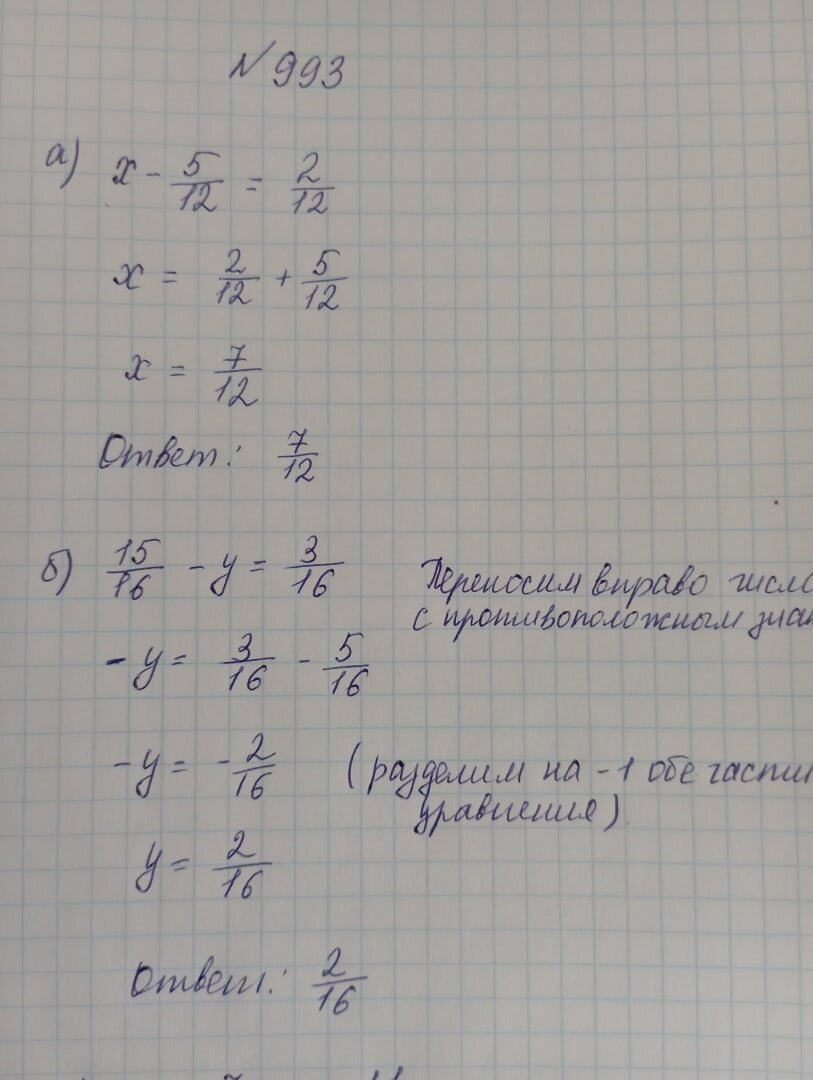 N 993
а) x - 5/12 = 2/12
x = 2/12 + 5/12
x = 7/12
Ответ: 7/12
б) 15/16 - y = 3/16 Переносим вправо число
с противоположным
- y = 3/16 - 5/16
- y = - 2/16 (разделим на -1 обе части
уравнения)
y = 2/16
Ответ: 2/16